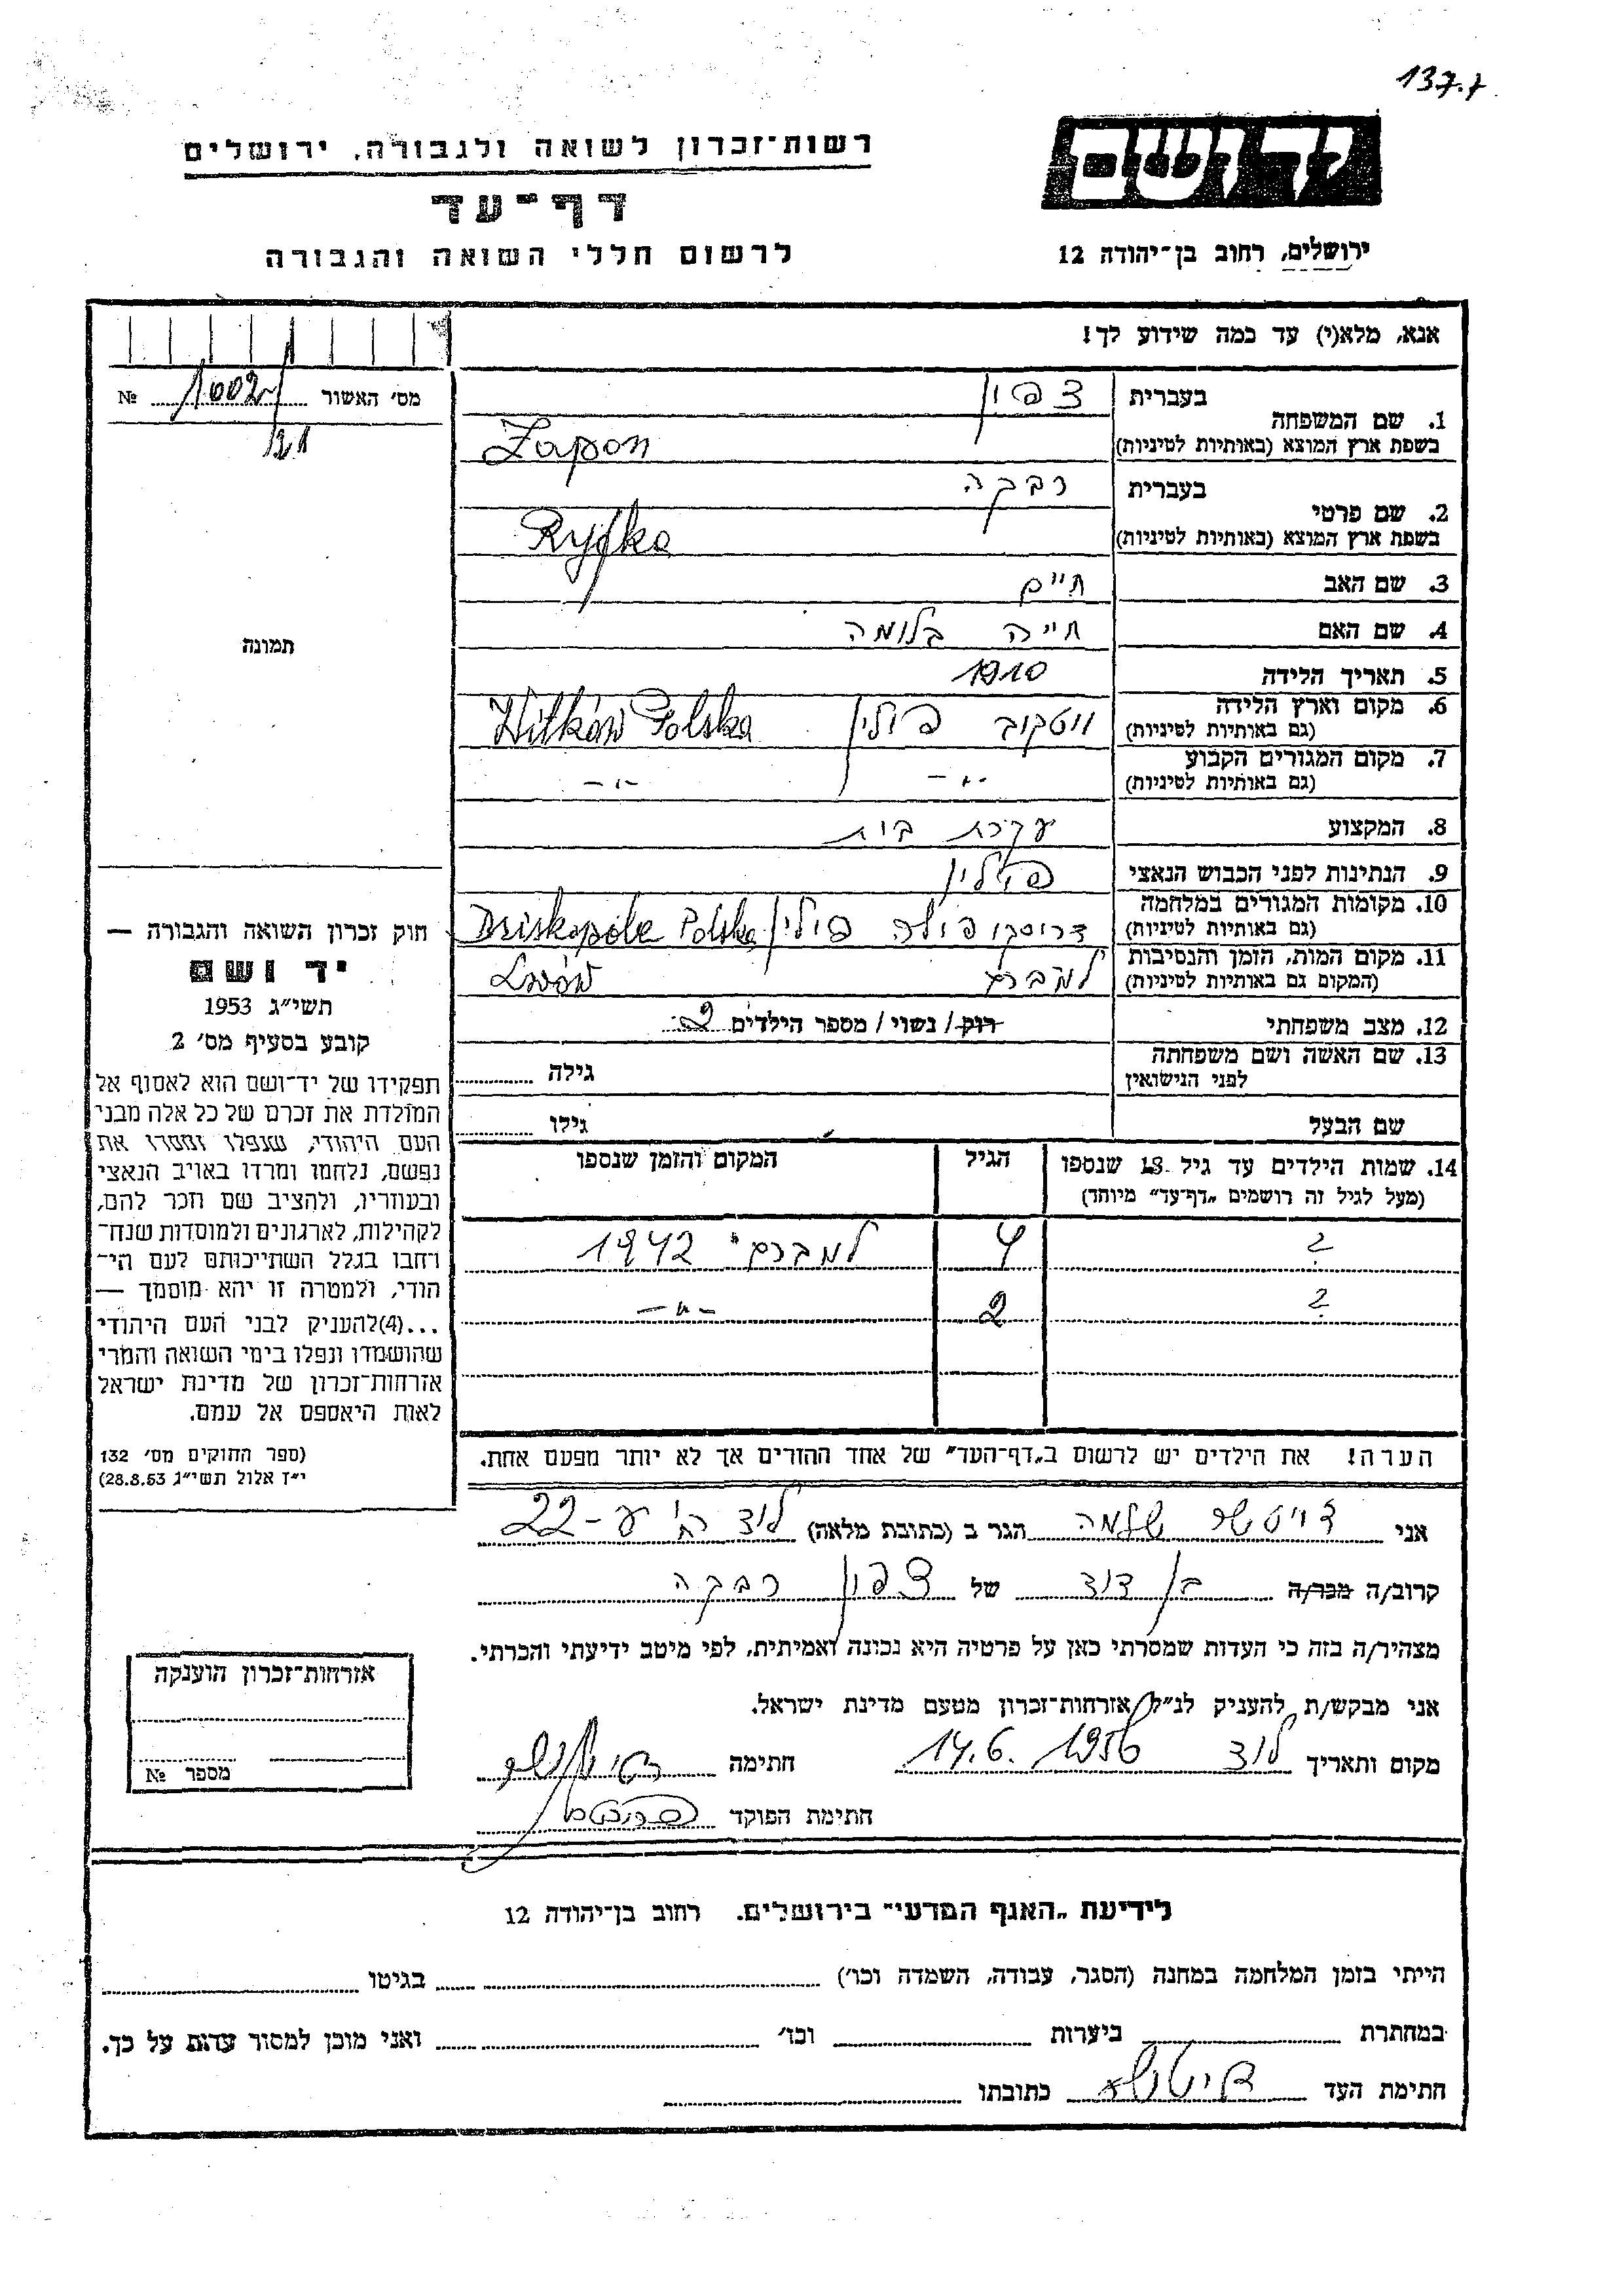 137.7
ידושם
רשות־זכרון לשואה ולגבורה, ירושלים
דף־עד
לרשום חללי השואה והגבורה
ירושלים, רחוב בן־יהודה 12
אנא, מלא(י) עד כמה שידוע לך!
מס' האשור № 1002
121
תמונה
1. שם המשפחה
בעברית צפון
בשפת ארץ המוצא (באותיות לטיניות) Zapon
2. שם פרטי
בעברית רבקה
בשפת ארץ המוצא (באותיות לטיניות) Ryfka
3. שם האב חיים
4. שם האם חייה בלומה
5. תאריך הלידה 1910
6. מקום וארץ הלידה
(גם באותיות לטיניות) ויטקוב פולין Witków Polska
7. מקום המגורים הקבוע
(גם באותיות לטיניות) -"- -"-
8. המקצוע עקרת בית
9. הנתינות לפני הכבוש הנאצי פולין
10. מקומות המגורים במלחמה
(גם באותיות לטיניות) דריסקופולה פולין Driskopole Polska
11. מקום המות, הזמן והנסיבות
(המקום גם באותיות לטיניות) למברג Lwów
12. מצב משפחתי רוק / נשוי / מספר הילדים 2
13. שם האשה ושם משפחתה
לפני הנישואין גילה
שם הבעל גילו
14. שמות הילדים עד גיל 18 שנספו הגיל המקום והזמן שנספו
(מעל לגיל זה רושמים „דף־עד" מיוחד)
? 4 למברג 1942
? 2 -"-
הערה! את הילדים יש לרשום ב„דף־העד" של אחד ההורים אך לא יותר מפעם אחת.
חוק זכרון השואה והגבורה —
יד ושם
תשי"ג 1953
קובע בסעיף מס' 2
תפקידו של יד־ושם הוא לאסוף אל
המולדת את זכרם של כל אלה מבני
העם היהודי, שנפלו ומסרו את
נפשם, נלחמו ומרדו באויב הנאצי
ובעוזריו, ולהציב שם וזכר להם,
לקהילות, לארגונים ולמוסדות שנח־
רחבו בגלל השתייכותם לעם הי־
הודי, ולמטרה זו יהא מוסמך —
...(4) להעניק לבני העם היהודי
שהושמדו ונפלו בימי השואה והמרי
אזרחות־זכרון של מדינת ישראל
לאות היאספם אל עמם.
(ספר החוקים מס' 132
י"ז אלול תשי"ג 28.8.53)
אני דויטשר שלמה הגר ב (כתובת מלאה) לוד 22-
קרוב/ה מכר/ה בן דוד של צפון רבקה
מצהיר/ה בזה כי העדות שמסרתי כאן על פרטיה היא נכונה ואמיתית, לפי מיטב ידיעתי והכרתי.
אני מבקש/ת להעניק לנ"ל אזרחות־זכרון מטעם מדינת ישראל.
מקום ותאריך לוד 14.6.1956 חתימה
חתימת הפוקד
אזרחות־זכרון הוענקה
מספר №
לידיעת „האגף המדעי" בירושלים. רחוב בן־יהודה 12
הייתי בזמן המלחמה במחנה (הסגר, עבודה, השמדה וכו') בגיטו
במחתרת ביערות וכו' ואני מוכן למסור עדות על כך.
חתימת העד כתובתו